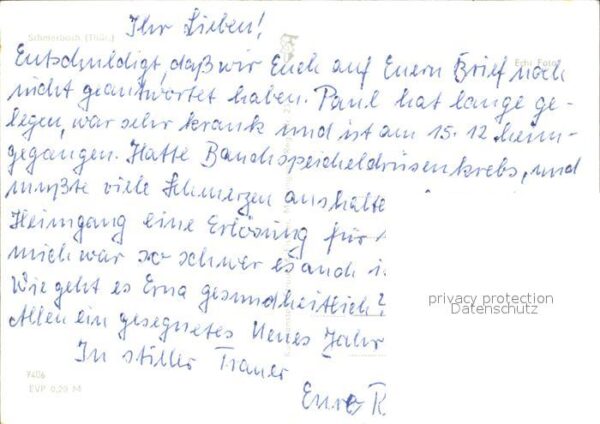 Ihr Lieben!
Schmerbach (Thür.)
Echt Foto
Entschuldigt, daß wir Euch auf Euern Brief noch
nicht geantwortet haben. Paul hat lange ge-
legen, war sehr krank und ist am 15.12 heim-
gegangen. Hatte Bauchspeicheldrüsenkrebs, und
mußte viele Schmerzen aushalte
Heimgang eine Erlösung für
mich war so schwer es auch i.
Wie geht es Erna gesundheitlich?
privacy protection
Datenschutz
Allen ein gesegnetes Neues Jahr
In stiller Trauer
7406
EVP 0,20 M
Eure R.